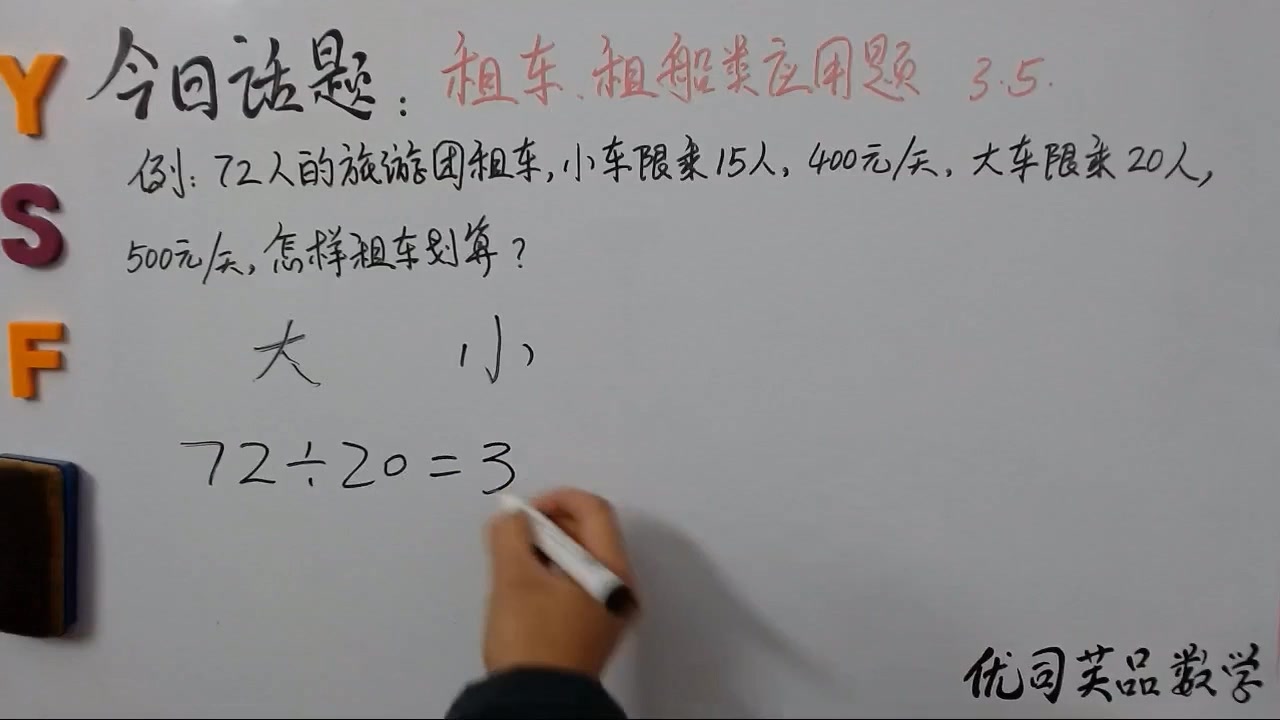 今日话题：租车、租船类应用题 3.5.
例：72人的旅游团租车,小车限乘15人,400元/天,大车限乘20人,
500元/天,怎样租车划算?
大 小
72÷20=3
Y
S
F
优司芙品数学